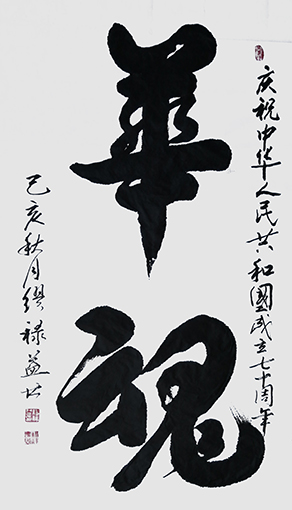 庆祝中华人民共和國成立七十周年
華魂
己亥秋月缪禄益书